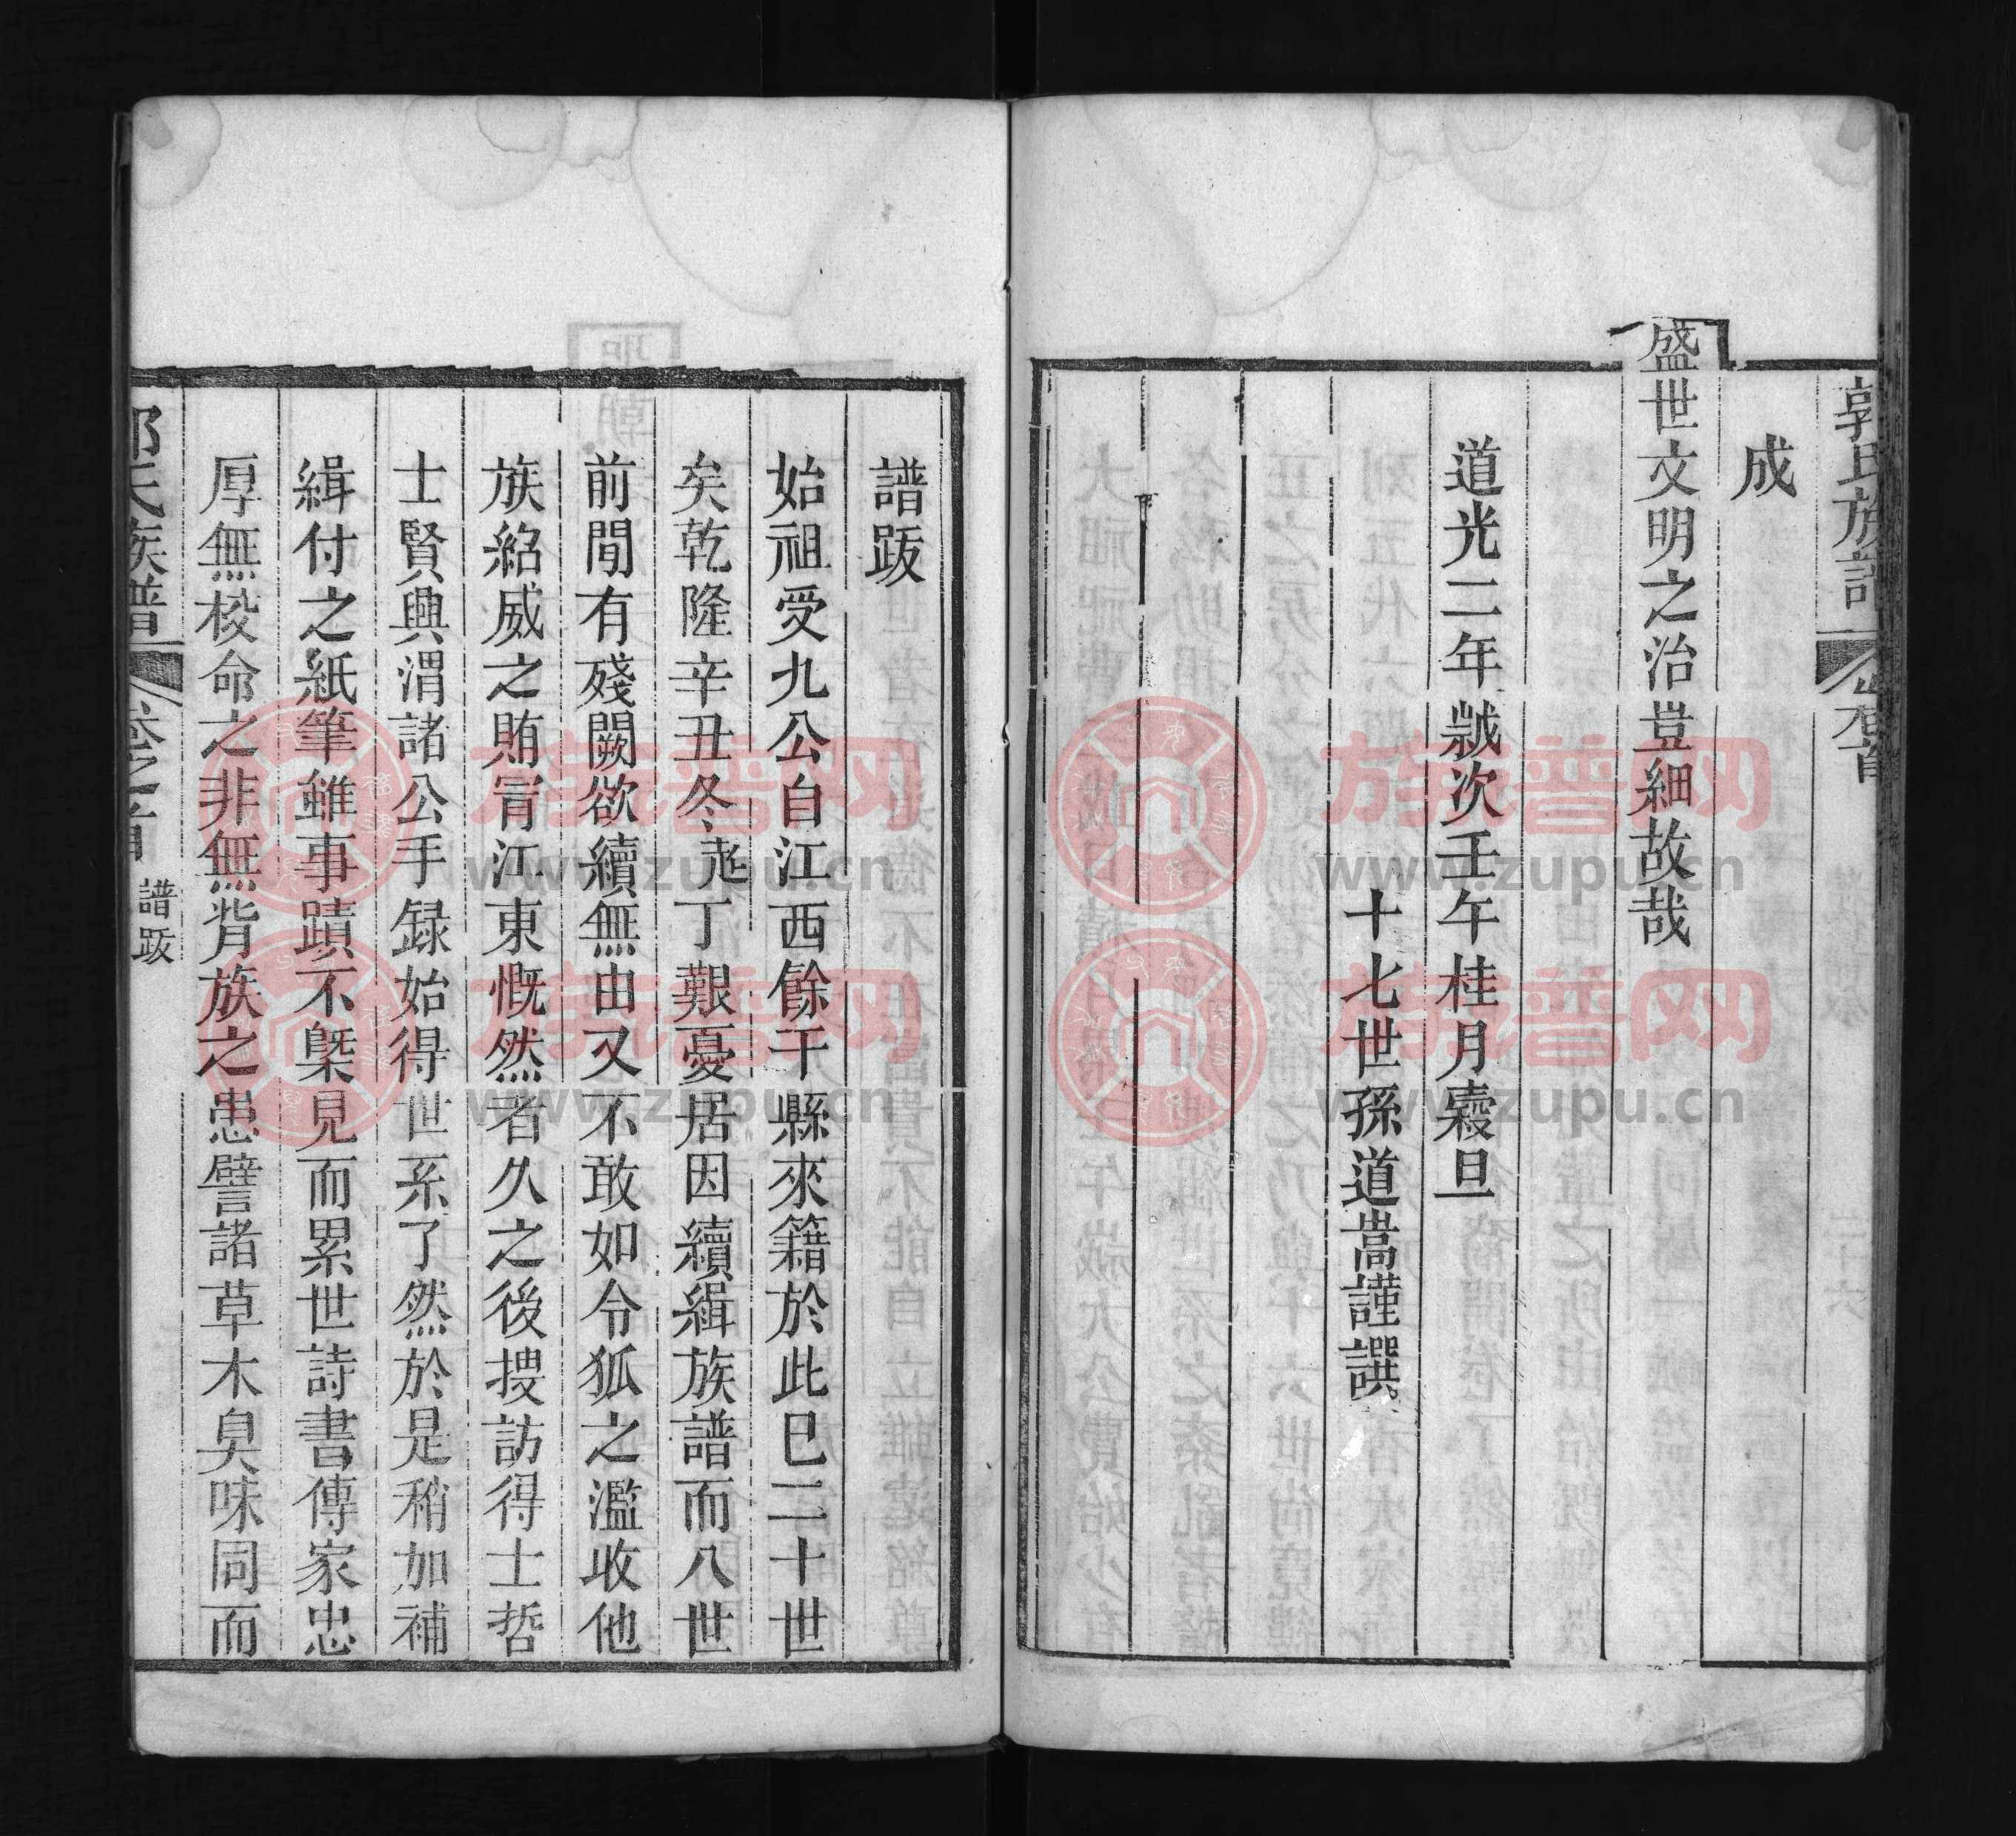 郭氏族譜 卷首
成
盛世文明之治豈細故哉
道光二年歲次壬午桂月穀旦
十七世孫道嵩謹譔
譜跋
始祖受九公自江西餘干縣來籍於此巳二十世
矣乾隆辛丑冬丁艱憂居因續緝族譜而八世
前間有殘闕欲續無由又不敢如令狐之濫收他
族紹威之賄冐江東慨然者久之後搜訪得士哲
士賢興渭諸公手録始得世系了然於是稍加補
緝付之紙筆雖事蹟不槩見而累世詩書傳家忠
厚無梭命之非無背族之患譬諸草木臭味同而
郭氏族譜 卷之首 譜跋
族譜网
www.zupu.cn
族譜网
www.zupu.cn
族譜网
www.zupu.cn
族譜网
www.zupu.cn